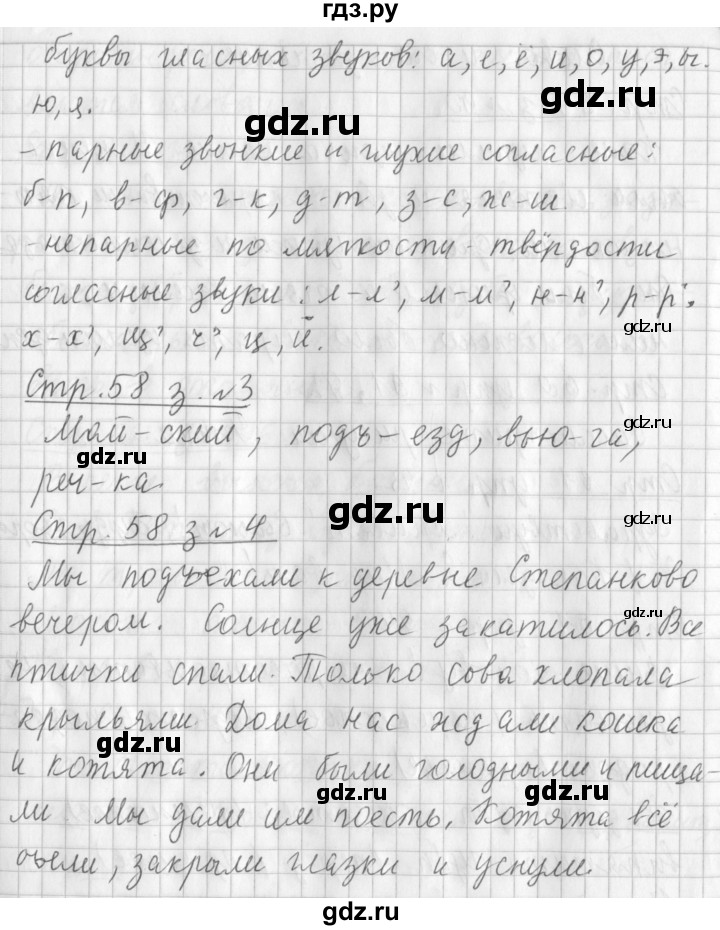 гдз.ру
буквы гласных звуков: а, е, ё, и, о, у, э, ы.
ю, я.
gdz.ru
gdz.ru
- парные звонкие и глухие согласные:
б-п, в-ф, г-к, д-т, з-с, ж-ш.
- непарные по мягкости - твёрдости
согласные звуки: л-л', м-м', н-н', р-р'.
gdz.ru
х-х', щ', ч', ц, й.
Стр. 58 з. №3
Май-ский, подъ-езд, вью-га,
gdz.ru
gdz.ru
реч-ка.
gdz.ru
gdz.ru
Стр. 58 з № 4
Мы подъехали к деревне Степанково
gdz.ru
вечером. Солнце уже закатилось. Все
птички спали. Только сова хлопала
крыльями. Дома нас ждали кошка
gdz.ru
gdz.ru
и котята. Они были голодными и пища-
gdz.ru
gdz.ru
ли. Мы дали им поесть. Котята всё
съели, закрыли глазки и уснули.
gdz.ru
gdz.ru